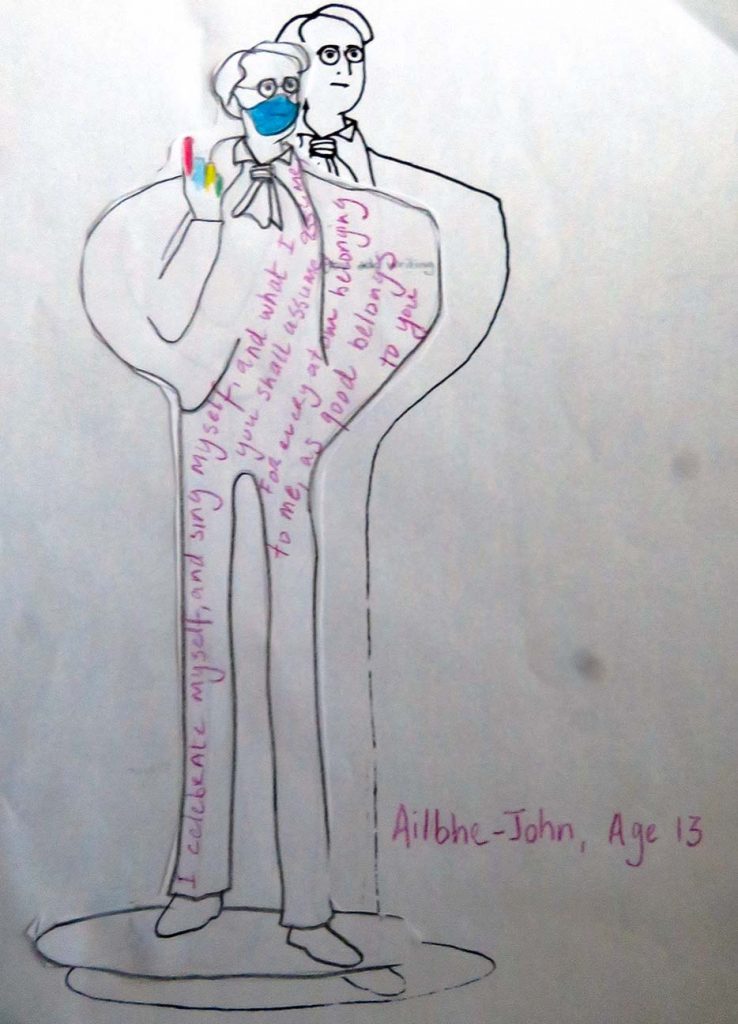 I celebrate myself, and sing myself, and what I assume
you shall assume
For every atom belonging
to me, as good belongs
to you
writing
Ailbhe-John, Age 13